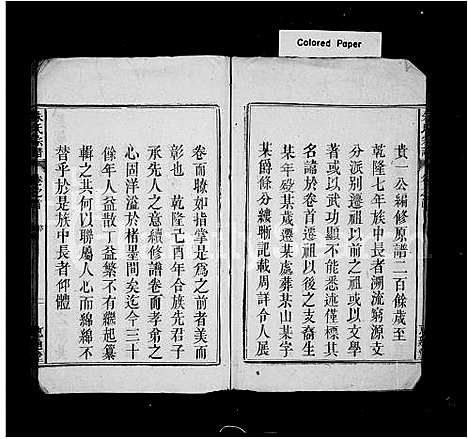 Colored Paper
貴一公編修原譜二百餘歲至
乾隆七年族中長者溯流窮源支
分派別遷祖以前之祖或以文學
著或以武功顯不能悉述僅標其
名諱於卷首遷祖以後之支裔生
某年歿某歲遷某處葬某山某字
某爵條分縷晰記載周詳令人展
卷而瞭如指掌是為之前者美而
彰也 乾隆己酉年合族先君子
承先人之意續修譜卷而孝弟之
心固洋溢於楮墨間矣迄今三十
餘年人益散丁益繁不復起纂
輯之其何以聯屬人心而綿綿不
替乎於是族中長者仰體